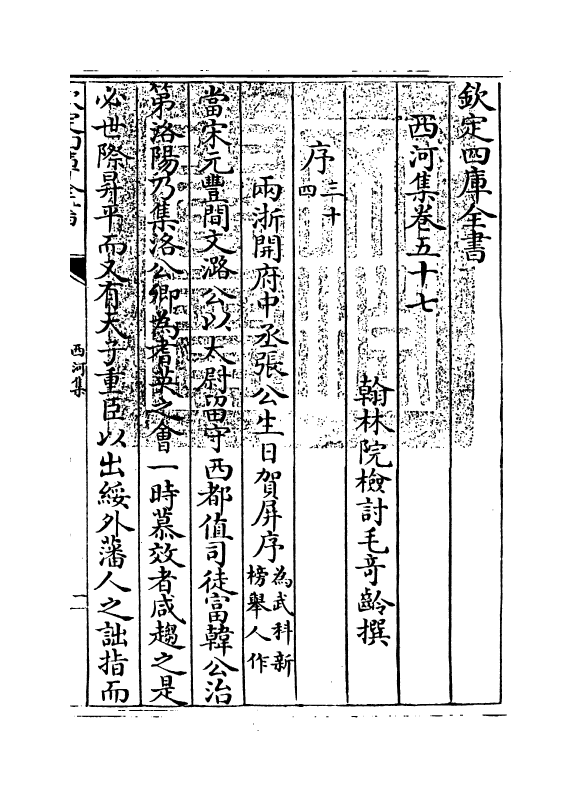 欽定四庫全書
西河集卷五十七
翰林院檢討毛奇齡撰
序三十四
兩浙開府中丞張公生日賀屏序為武科新榜舉人作
當宋元豐間文潞公以太尉留守西都值司徒富韓公治
第洛陽乃集洛公卿為耆英之會一時慕效者咸趨之是
必世際昇平而又有天子重臣以出綏外藩人之詘指而
欽定四庫全書
西河集
一